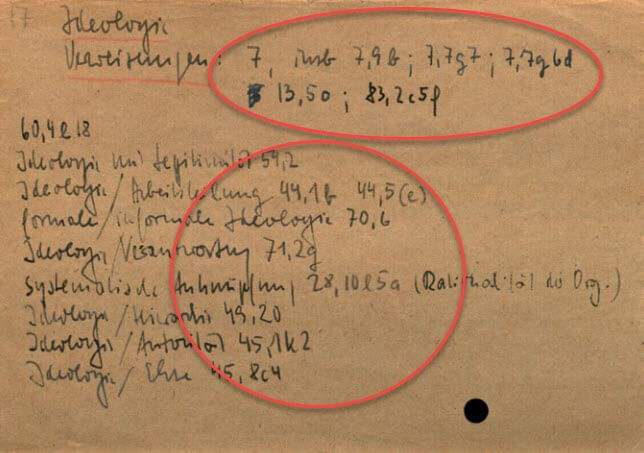 17 Ideologie
Verweisungen: 7, insb 7,9b; 7,7g7; 7,7g6d
13,5o; 83,2c5f
60,4e18
Ideologie und Legitimität 54,2
Ideologie/Arbeitsteilung 44,1b 44,5(e)
formale/informale Ideologie 70,6
Ideologie/Verantwortung 71,2g
Systematische Anknüpfung 28,10e5a (Rationalität der Org.)
Ideologie/Hierarchie 49,20
Ideologie/Autorität 45,1k2
Ideologie/ 45,8c4